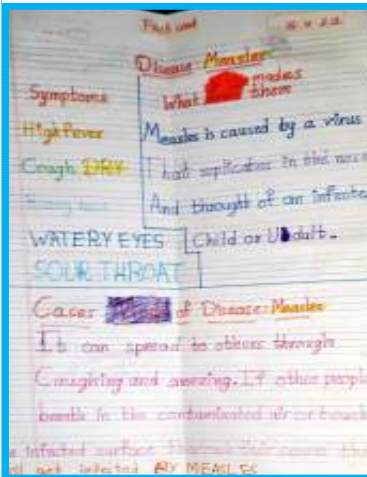 Fact and
Disease Measles
Symptoms
High Fever
Cough DRY
WATERY EYES
SOUR THROAT
What mades them
Measles is caused by a virus
That replicates in the nose
And throught of an infected
Child or Udult..
Cases of Disease: Measles
It can spread to others through
Coughing and sneezing. If other people
breath in the contaminated air or touch
infected surface
get infected BY MEASLES